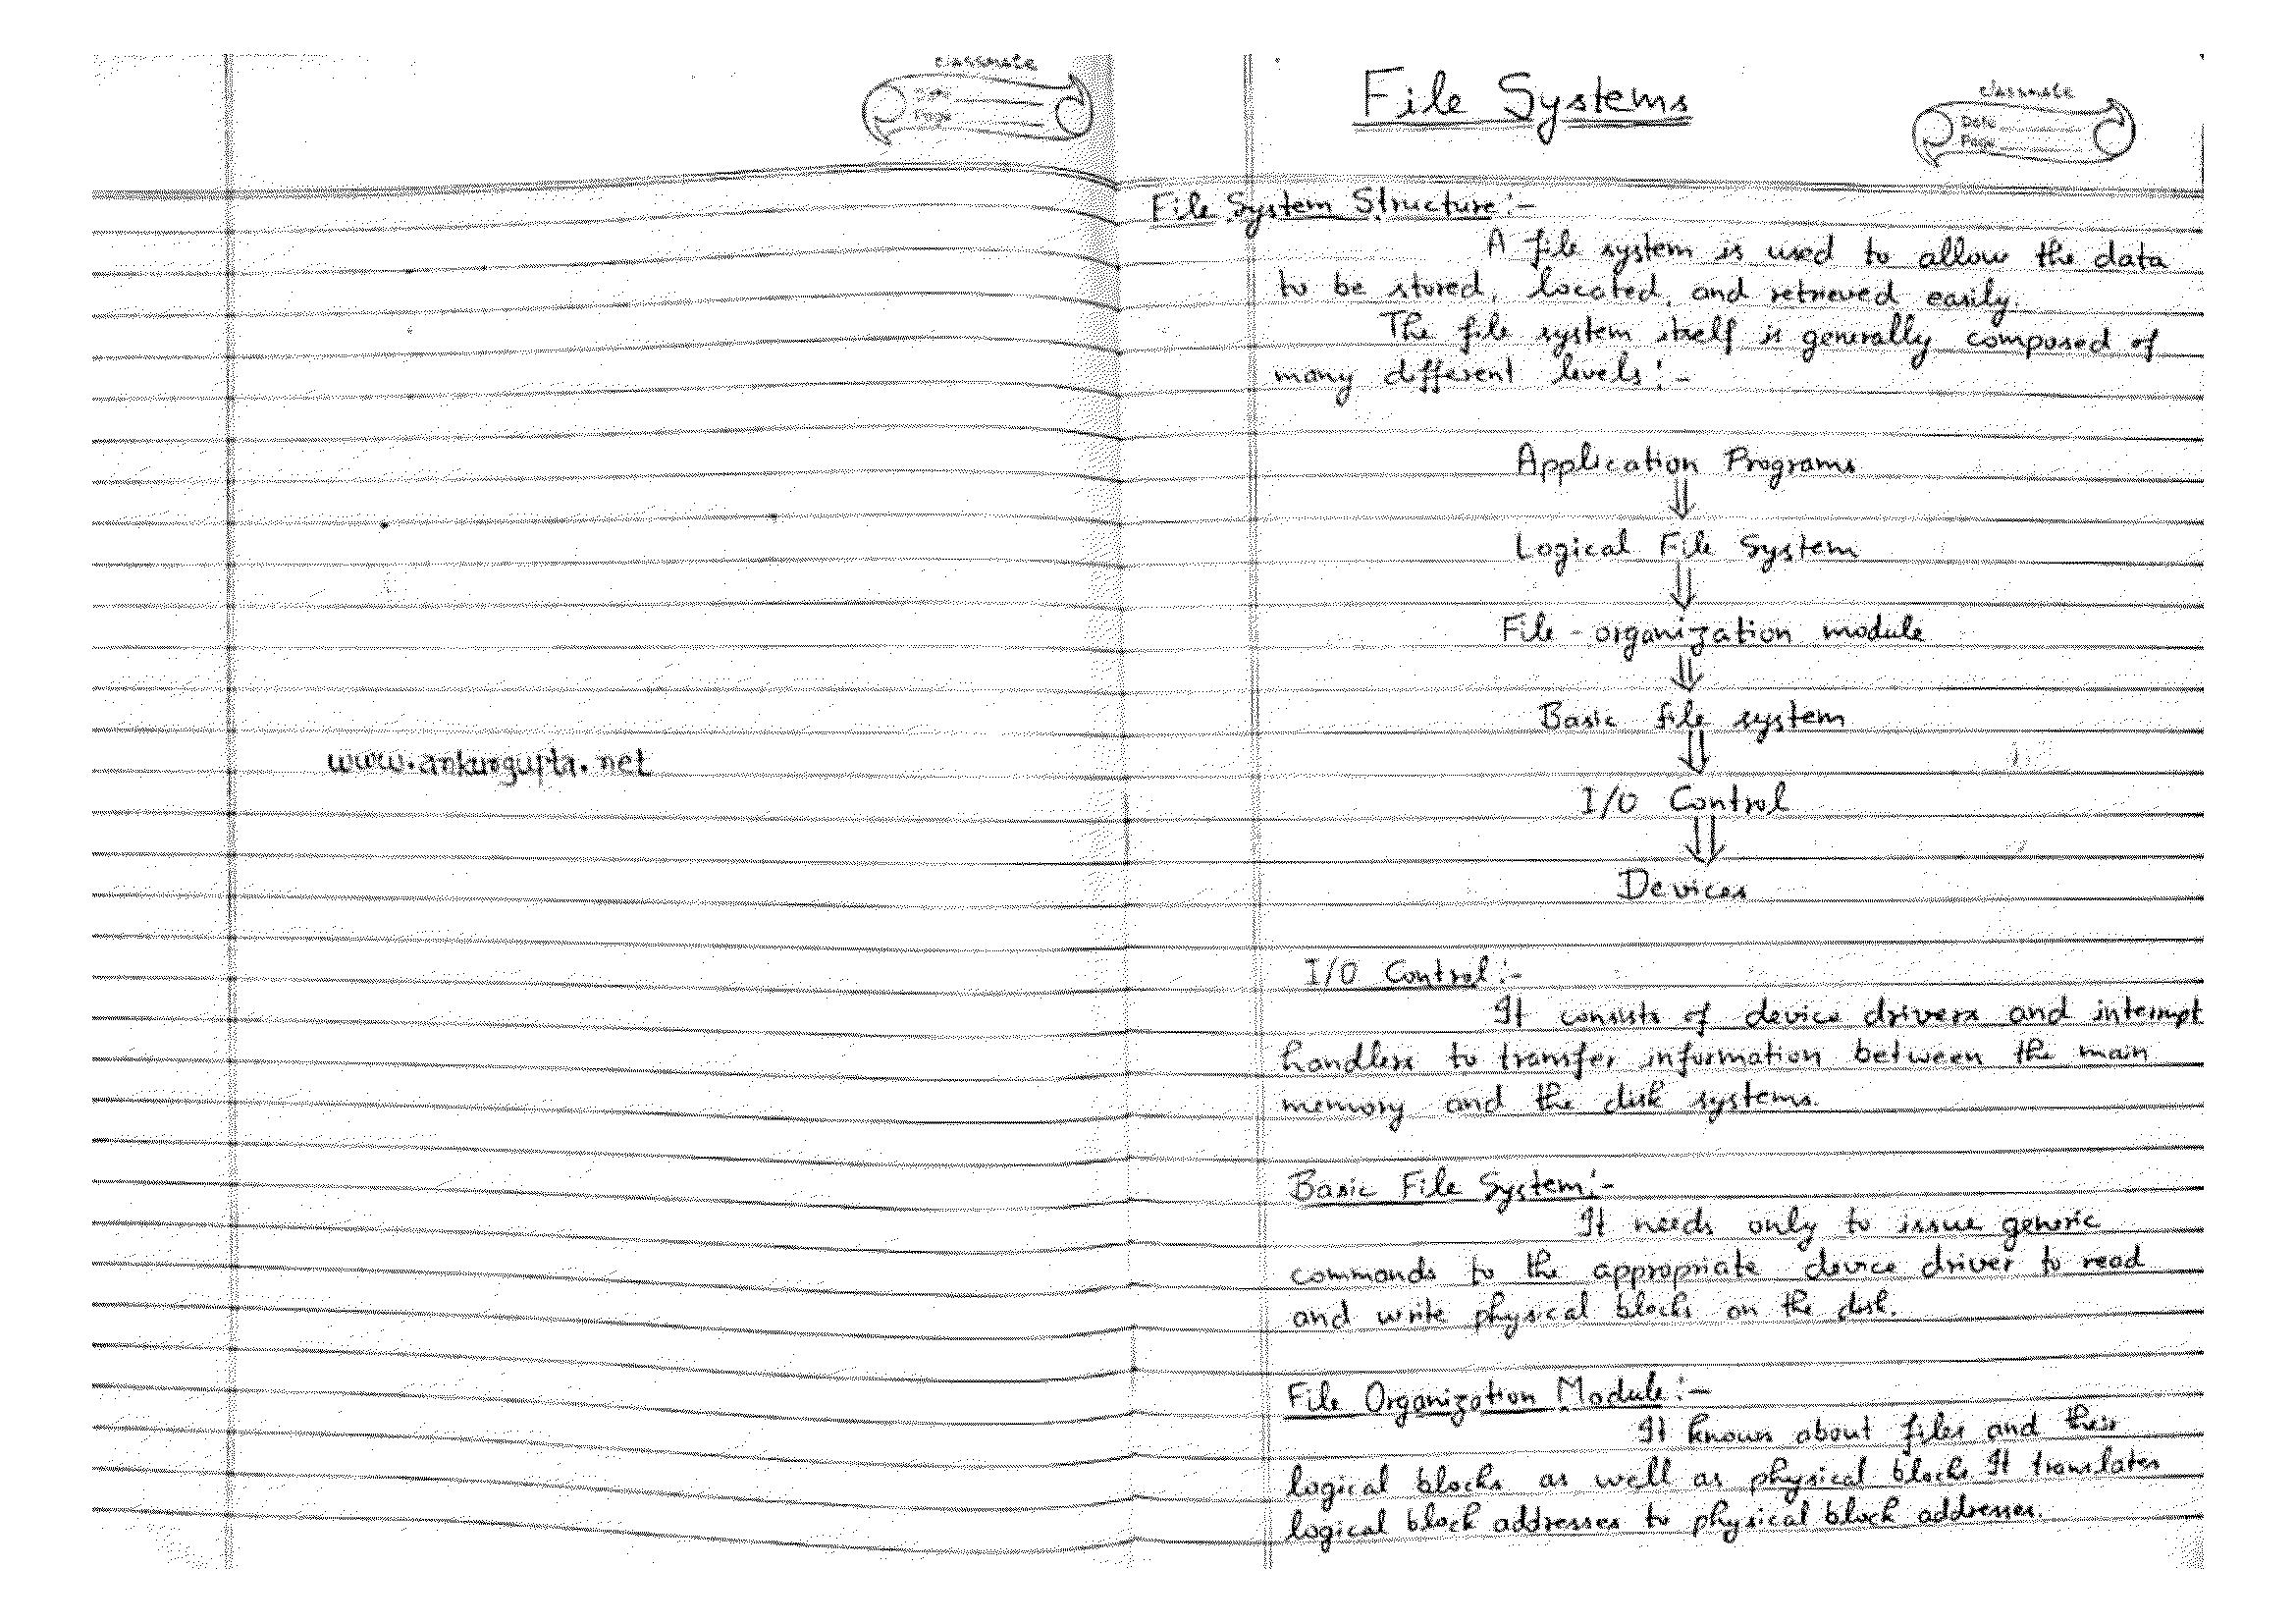 classmate
Date
Page
www.ankurgupta.net
File Systems
classmate
Date
Page
File System Structure:-
A file system is used to allow the data
to be stored, located, and retrieved easily.
The file system itself is generally composed of
many different levels:-
Application Programs
⇓
Logical File System
⇓
File-organization module
⇓
Basic file system
⇓
I/O Control
⇓
Devices
I/O Control:-
It consists of device drivers and interrupt
handlers to transfer information between the main
memory and the disk systems.
Basic File System:-
It needs only to issue generic
commands to the appropriate device driver to read
and write physical blocks on the disk.
File Organization Module:-
It knows about files and their
logical blocks as well as physical blocks. It translates
logical block addresses to physical block addresses.